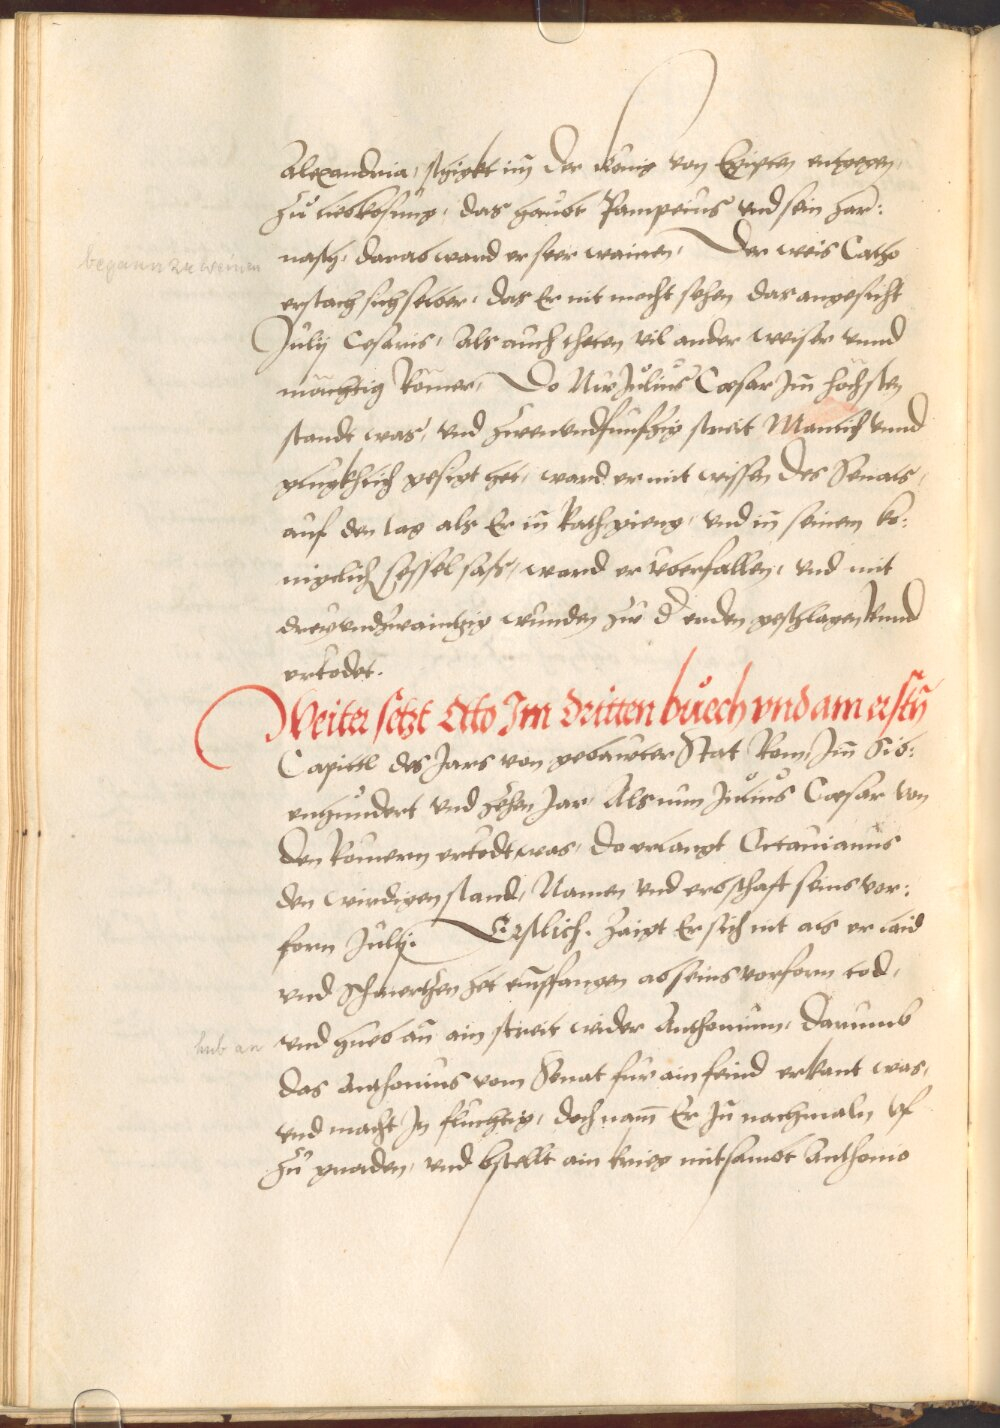 Alexandria, schickt im der konig von Egipten entgegen,
zu liebkosung, das haubt Pompeius vnd sein har:
nasch, darab ward er seer wainen, Der weis Catho
begann zu weinen
erstach sich selber, das Er nit mecht sehen das angesicht
Julij Cesaris, Als auch theten vil ander weiser vnnd
mächtig Römer, Do Nur Julius Cæsar Im höchsten
standt was, vnd zwenvndfunfzig streit Manlich vnnd
glugkhlich gesigt het, ward er mit wissen des Senats,
auf den tag als Er in Rath gieng, vnd in seinem ko:
niglich sessel sass, ward er vberfallen, vnd mit
dreyvndzwaintzig wunden zu d erden geschlagen vnnd
ertodet.
Weiter setzt Otto Im dritten buech vnd am erstn
Capittl des Jars von gebawter Stat Rom, Im Sib:
enhundert vnd zehen Jar, Als nun Julius Cæsar von
den Römern ertodt was, do erlangt Octauianus
den wirdigen stand, Namen vnd erbschaft seins vor:
forn Julij. Erstlich. Zaigt Er sich nit als er laid
vnd schmertzen het empfangen ab seins vorforn tod,
vnd hueb an ain streit wider Anthonium, Darumb
hub an
das Anthonius vom Senat fur ain feind erkant was,
vnd macht In fluchtig, doch nam Er In nachmaln vf
zu gnaden, vnd bstellt ain krieg mitsambt Anthonio